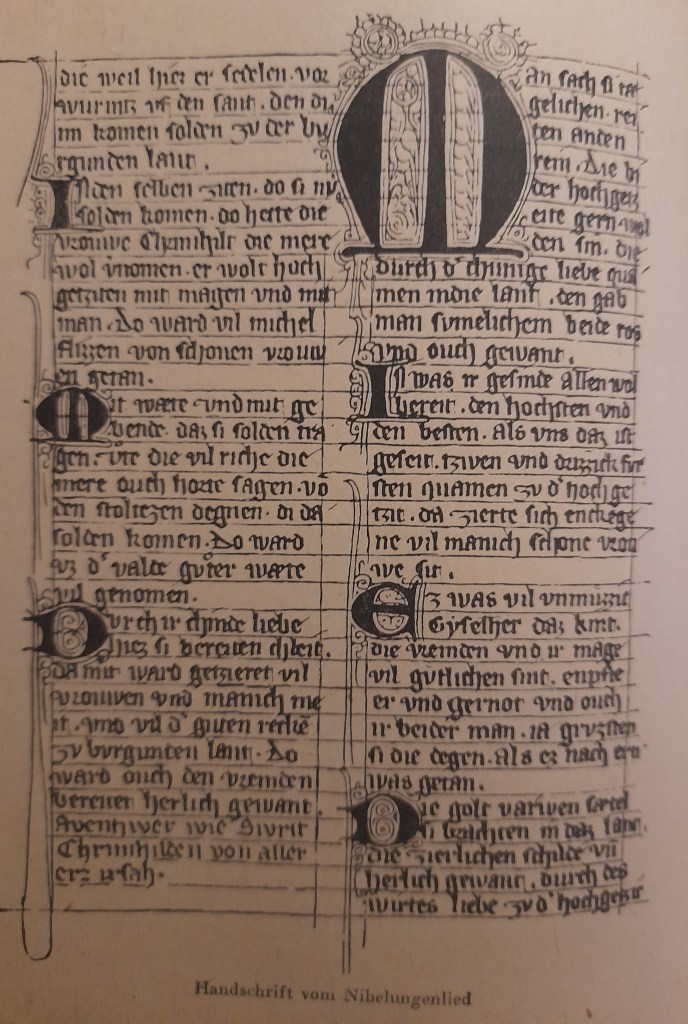 die weil hier er sedelen. vor
wurmtz vf den sant. den di
im komen solden zv der bu
rgunden lant.
In den selben ziten. do si nv
solden komen. do hette die
vrouwe Chrimhilt die mere
wol vnomen. er wolt hoch
getziten mit magen vnd mit
man. Do ward vil michel
flizen von schonen vrouw
en getan.
Mit wæte vnd mit ge
bende. daz si solden tra
gen. vte die vil riche die
mere ouch horte sagen. vō
den stoltzen degnen. di da
solden komen. Do ward
vz d' valde guter wæte
vil genomen.
Durch ir chinde liebe
hiez si bereiten chleit.
da mit ward getzieret vil
vrouwen vnd manich me
it. vnd vil d' guten reckē
zv burgunten lant. Do
ward ouch den vremden
bereitet herlich gewant.
Aventiwer wie Sivrit
Chrimhilden von aller
erz ersah.
Man sach si tæ
gelichen. rei
ten anden
rein. Die bi
der hochgetz
eite gern wol
den sin. die
durch d' chunige liebe qua
men indie lant. den gab
man sumelichem beide ros
vnd ouch gewant.
Is was ir gesinde allen wol
bereit. den hochsten vnd
den besten. Als vns daz ist
geseit. tzwen vnd drizzich fur
sten quamen zv d' hochge
tzit. da zierte sich entkege
ne vil manich schone vrou
we sit.
Ez was vil vnmuzzic
Gyselher daz kint.
die vremden vnd ir mage
vil gutlichen sint. enpfie
er vnd gernot vnd ouch
ir beider man. ia gruzten
si die degen. als ez nach ern
was getan.
Die golt varwen satel
si brachten in daz lant.
die zierlichen schilde vn
herlich gewant. durch des
wirtes liebe zv d' hochgetzit
Handschrift vom Nibelungenlied